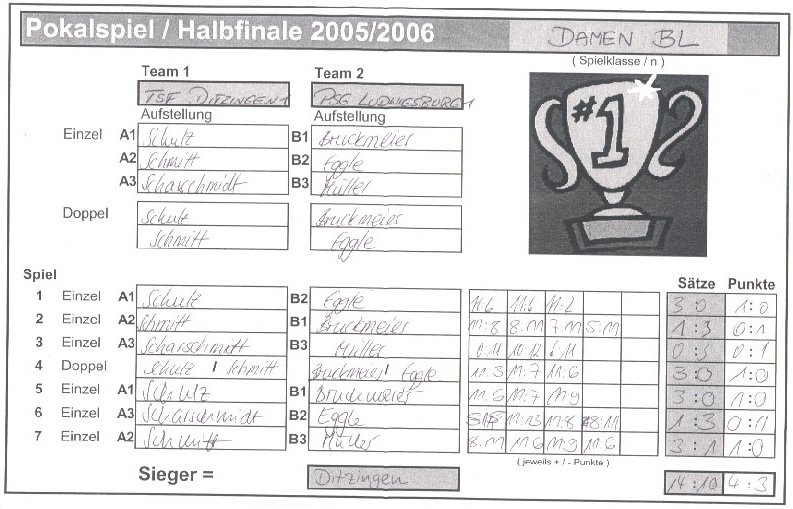 Pokalspiel / Halbfinale 2005/2006 DAMEN BL
( Spielklasse / n )
Team 1 Team 2
TSF DITZINGEN 1 PSG LUDWIGSBURG 1
Aufstellung Aufstellung
#1
Einzel A1 Schulz B1 Bruckmeier
A2 Schmitt B2 Eggle
A3 Scharschmidt B3 Müller
Doppel Schulz Bruckmeier
Schmitt Eggle
Spiel Sätze Punkte
1 Einzel A1 Schulz B2 Eggle 11:6 11:6 11:2 3:0 1:0
2 Einzel A2 Schmitt B1 Bruckmeier 11:8 8:11 7:11 5:11 1:3 0:1
3 Einzel A3 Scharschmidt B3 Müller 10:12 0:3 0:1
4 Doppel Schulz / Schmitt Bruckmeier / Eggle 11:3 11:7 11:6 3:0 1:0
5 Einzel A1 Schulz B1 Bruckmeier 11:6 11:7 11:9 3:0 1:0
6 Einzel A3 Scharschmidt B2 Eggle 11:13 11:8 8:11 1:3 0:1
7 Einzel A2 Schmitt B3 Müller 8:11 11:6 11:9 11:6 3:1 1:0
( jeweils + / - Punkte )
Sieger = Ditzingen 14:10 4:3